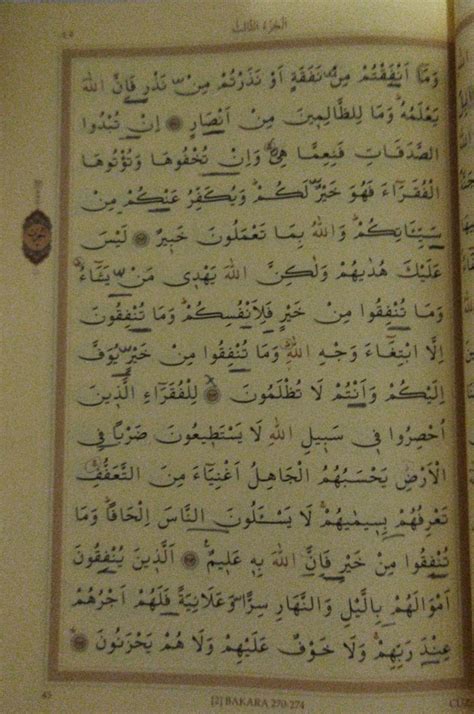 ٤٥ اَلْجُزْءُ الثَّالِثُ
وَمَٓا اَنْفَقْتُمْ مِنْ نَفَقَةٍ اَوْ نَذَرْتُمْ مِنْ نَذْرٍ فَاِنَّ اللّٰهَ
يَعْلَمُهُۜ وَمَا لِلظَّالِم۪ينَ مِنْ اَنْصَارٍ ﴿٢٧٠﴾ اِنْ تُبْدُوا
الصَّدَقَاتِ فَنِعِمَّا هِيَۚ وَاِنْ تُخْفُوهَا وَتُؤْتُوهَا
الْفُقَرَٓاءَ فَهُوَ خَيْرٌ لَكُمْۜ وَيُكَفِّرُ عَنْكُمْ مِنْ
سَيِّـَٔاتِكُمْۜ وَاللّٰهُ بِمَا تَعْمَلُونَ خَب۪يرٌ ﴿٢٧١﴾ لَيْسَ
عَلَيْكَ هُدٰيهُمْ وَلٰكِنَّ اللّٰهَ يَهْد۪ي مَنْ يَشَٓاءُۜ
وَمَا تُنْفِقُوا مِنْ خَيْرٍ فَلِاَنْفُسِكُمْۜ وَمَا تُنْفِقُونَ
اِلَّا ابْتِغَٓاءَ وَجْهِ اللّٰهِۜ وَمَا تُنْفِقُوا مِنْ خَيْرٍ يُوَفَّ
اِلَيْكُمْ وَاَنْتُمْ لَا تُظْلَمُونَ ﴿٢٧٢﴾ لِلْفُقَرَٓاءِ الَّذ۪ينَ
اُحْصِرُوا ف۪ي سَب۪يلِ اللّٰهِ لَا يَسْتَط۪يعُونَ ضَرْبًا فِي
الْاَرْضِۘ يَحْسَبُهُمُ الْجَاهِلُ اَغْنِيَٓاءَ مِنَ التَّعَفُّفِۚ
تَعْرِفُهُمْ بِس۪يمٰيهُمْۚ لَا يَسْـَٔلُونَ النَّاسَ اِلْحَافًاۜ وَمَا
تُنْفِقُوا مِنْ خَيْرٍ فَاِنَّ اللّٰهَ بِه۪ عَل۪يمٌ۟ ﴿٢٧٣﴾ اَلَّذ۪ينَ يُنْفِقُونَ
اَمْوَالَهُمْ بِالَّيْلِ وَالنَّهَارِ سِرًّا وَعَلَانِيَةً فَلَهُمْ اَجْرُهُمْ
عِنْدَ رَبِّهِمْۚ وَلَا خَوْفٌ عَلَيْهِمْ وَلَا هُمْ يَحْزَنُونَ ﴿٢٧٤﴾
45 [2] BAKARA 270-274